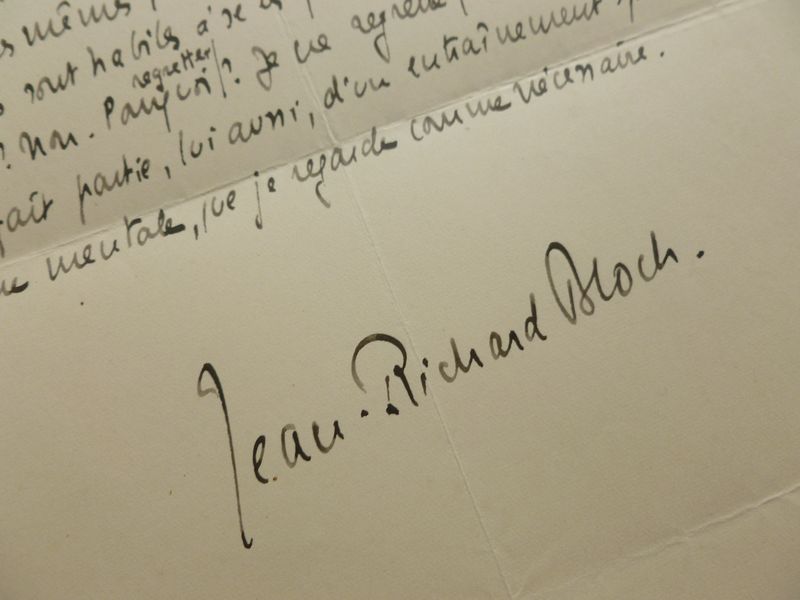 mêmes,
sont habiles à se
regretter
? Non. Pourquoi? Je ne regrette
fait partie, lui aussi, d'un entraînement
mentale, que je regarde comme nécessaire.
Jean-Richard Bloch.